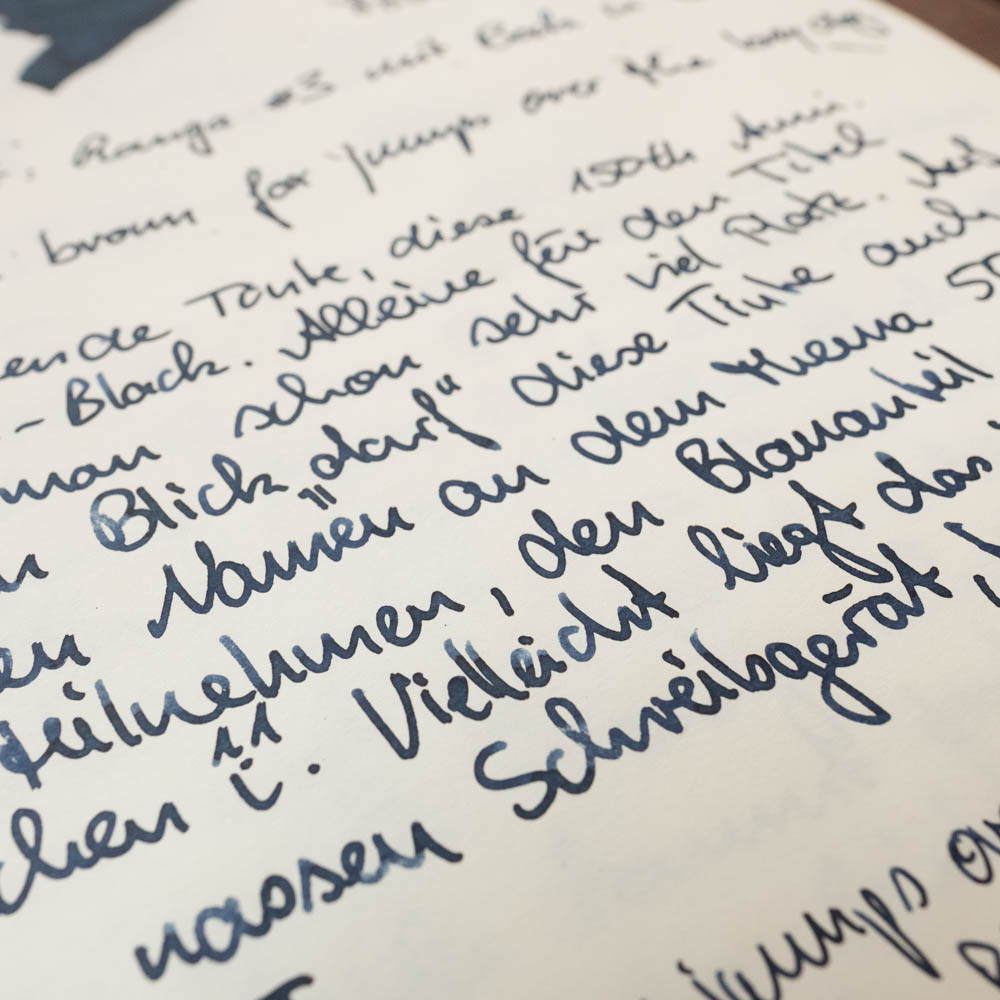 Ranga #3 mit Bock
brown fox jumps over the lazy dog
ende Tinte, diese 150th Anni.
- Black. Alleine für den Titel
man schon sehr viel Platz. Auf
Blick „darf“ diese Tinte auch
en Namen an dem Thema 5
teilnehmen, den Blauanteil
chen i. 11 Vielleicht liegt das
nassen Schreibgerät,
jumps